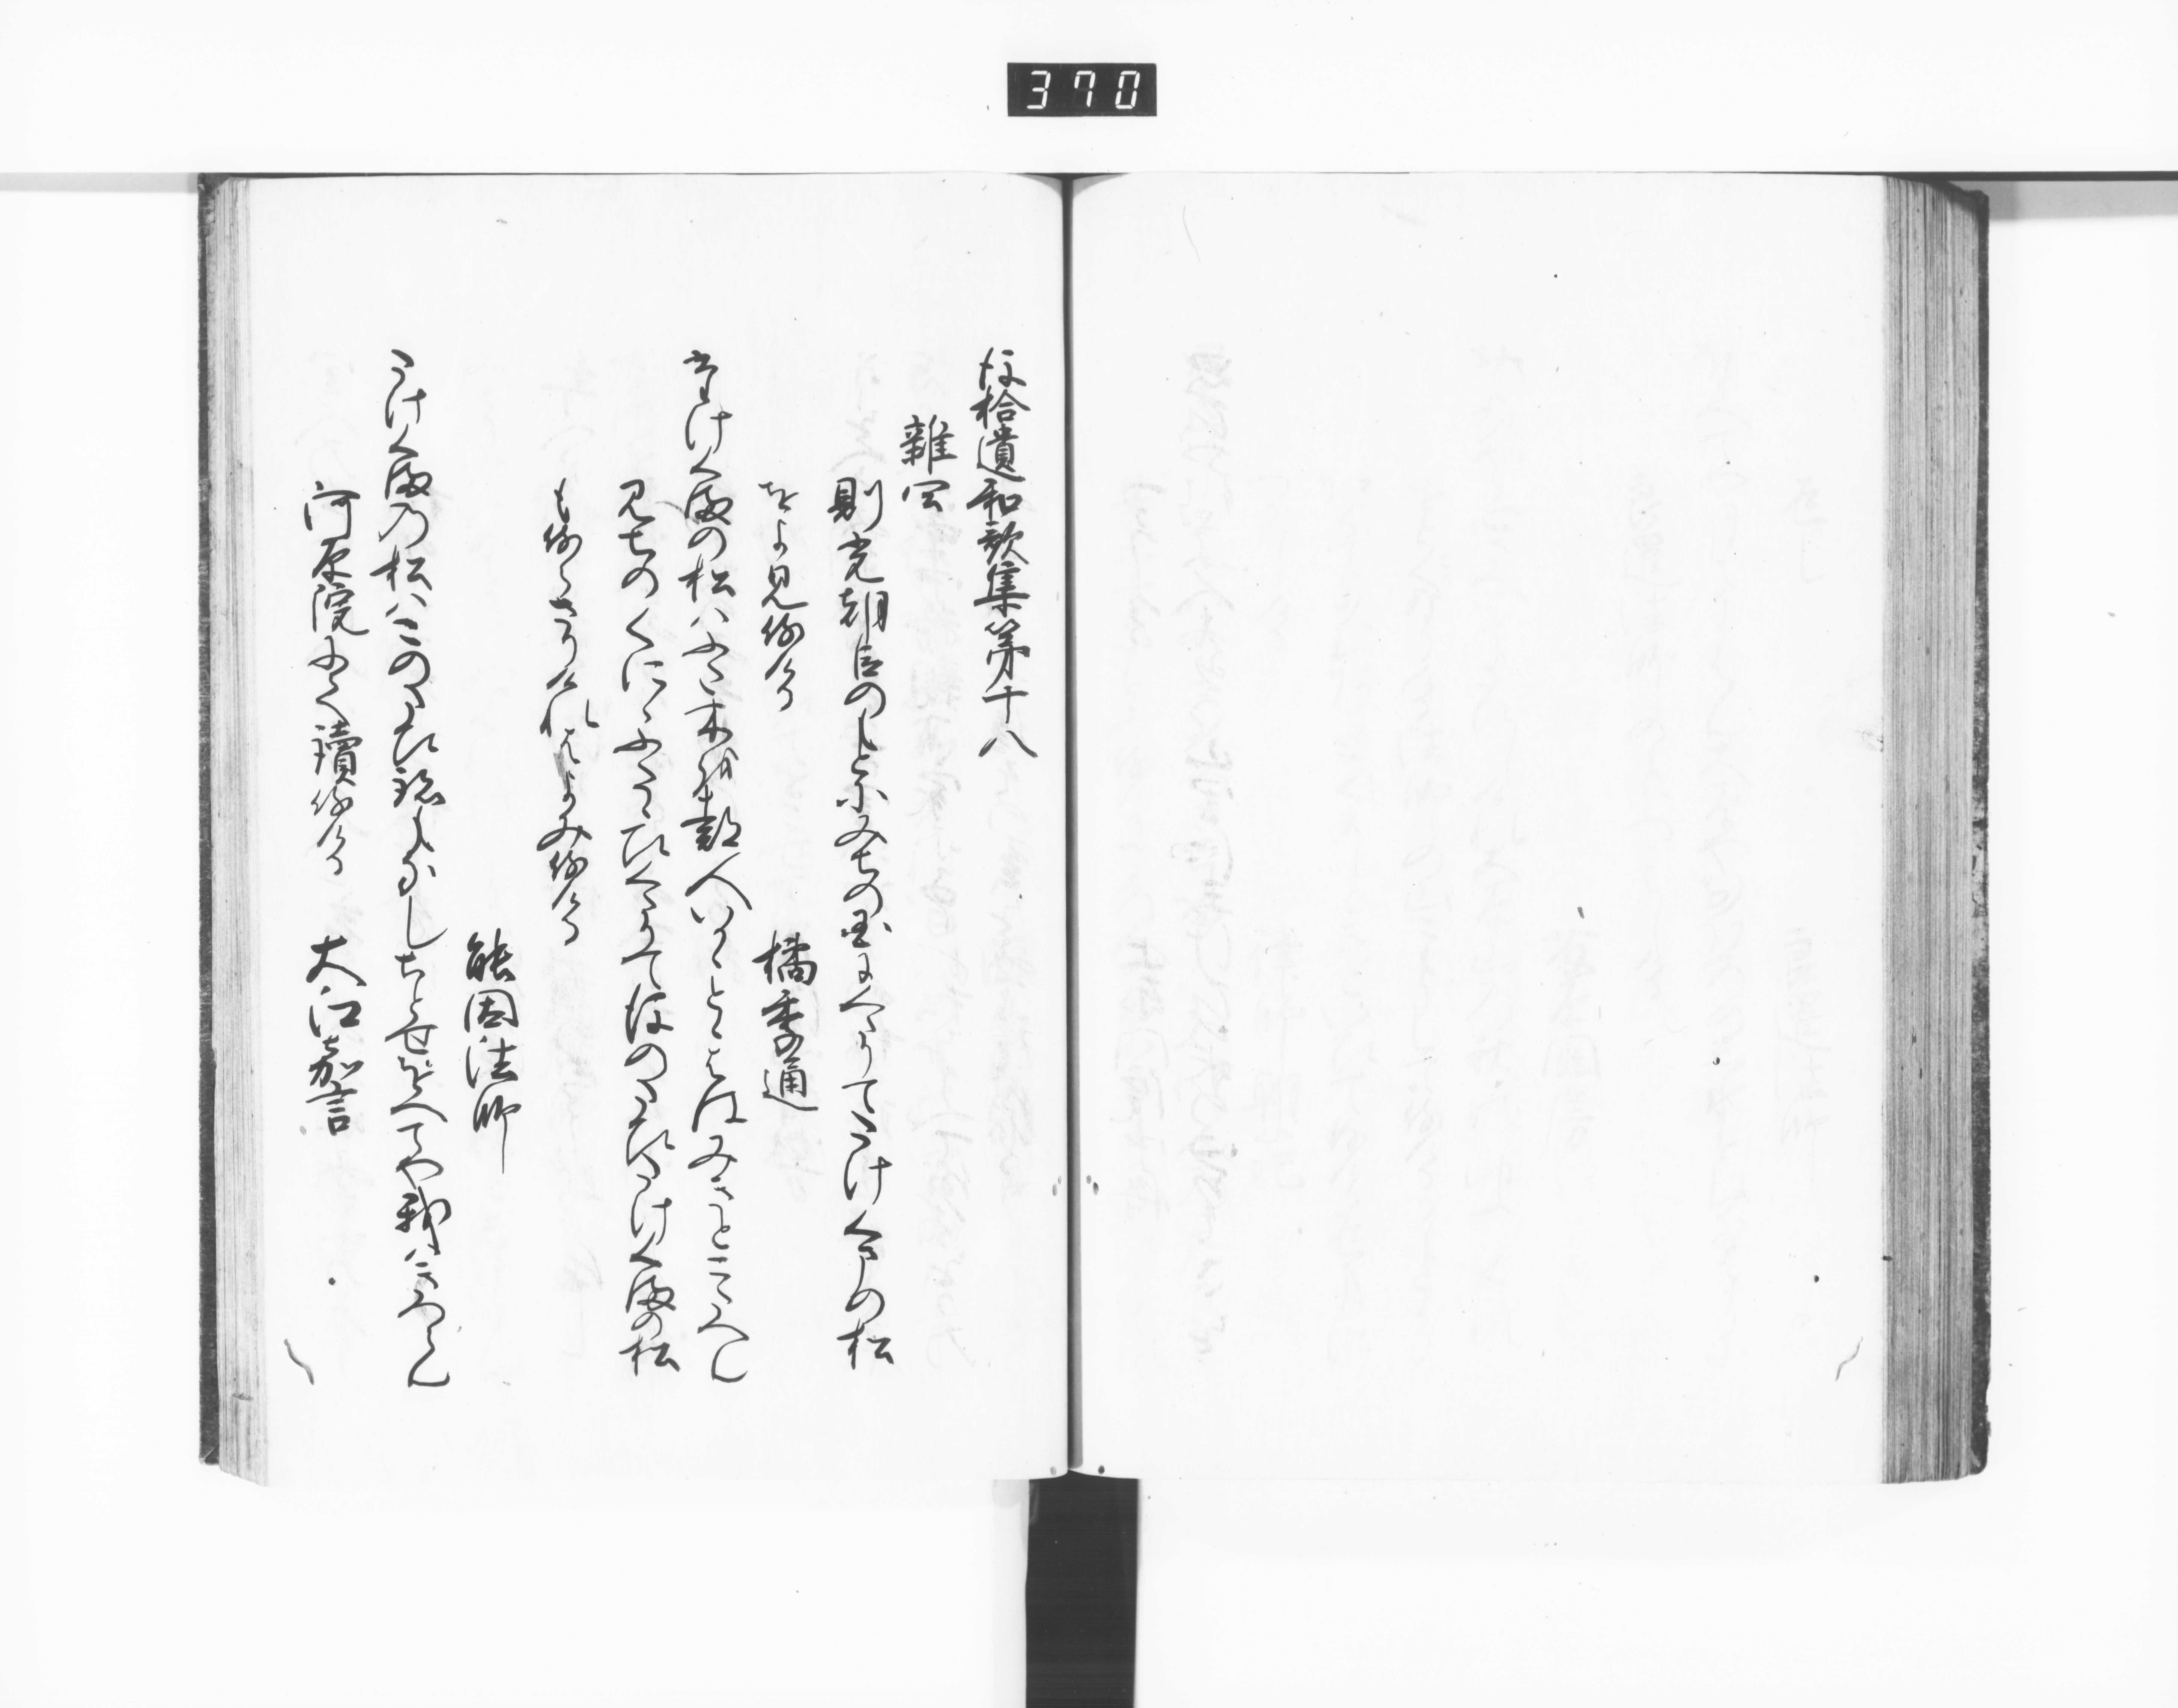 370
後拾遺和歌集第十八
雑四
則光朝臣のともにみちの国にくたりてたけくまの松
をよみ侍ける
橘季通
たけくまの松はふた木を都人いかゝとゝはゝみきとこたへん
みちのくにゝふたゝひくたりて後のたひたけくまの松
も侍らさりけれはよみ侍ける
能因法師
たけくまの松はこのたひ跡もなしちとせをへてや我はきつらん
河原院にて読侍ける
大江嘉言